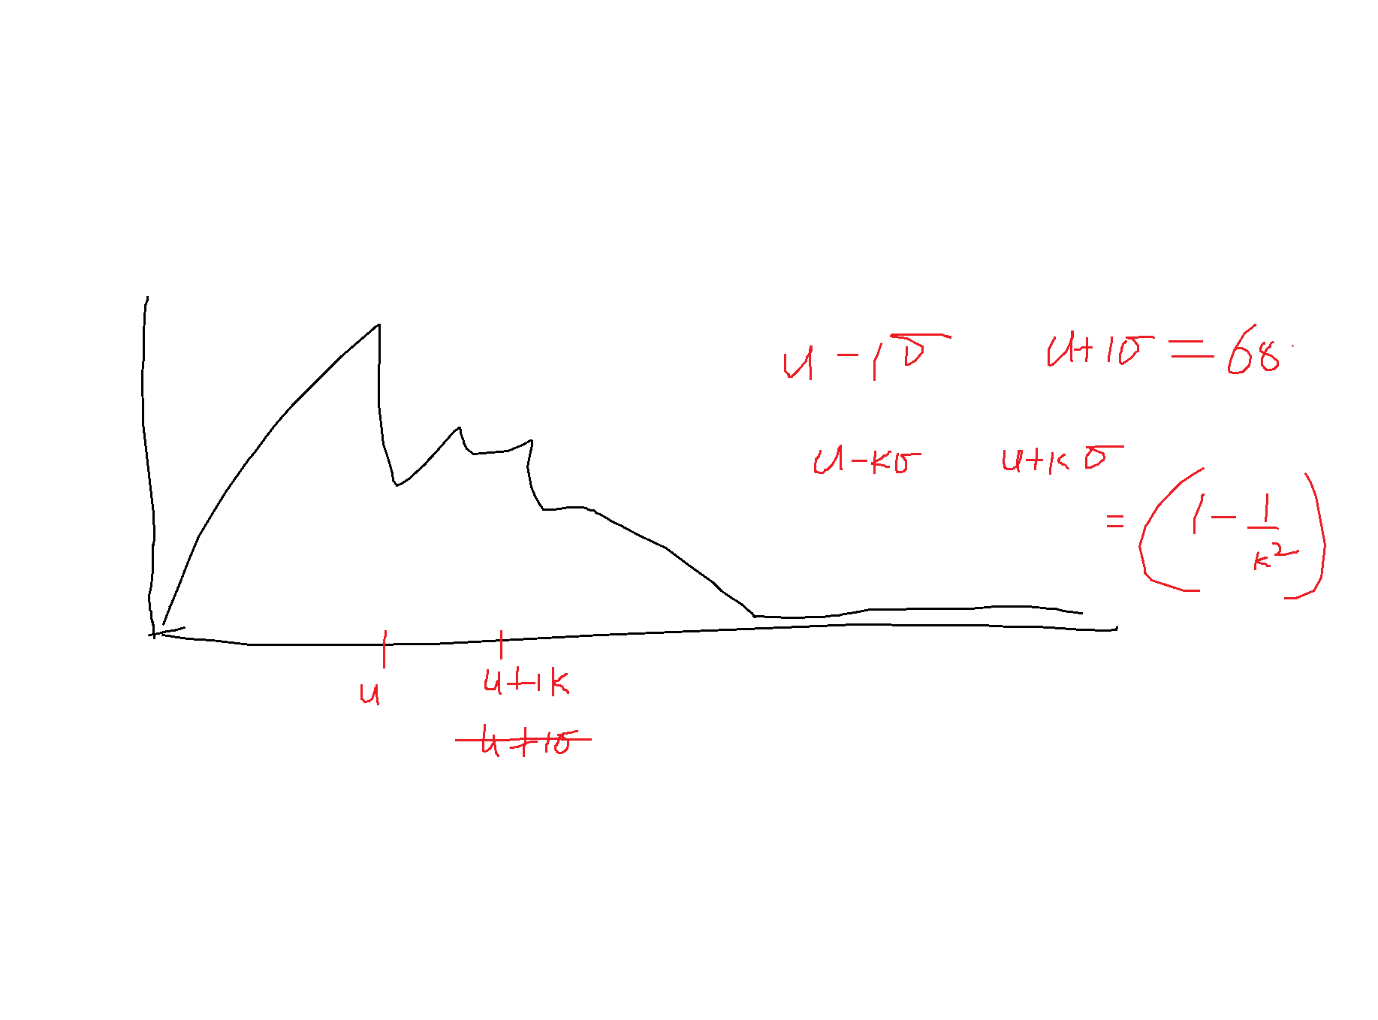 u - 1σ u + 1σ = 68
u - kσ u + k σ
= (1 - 1/k²)
u u + 1k
u + 1σ